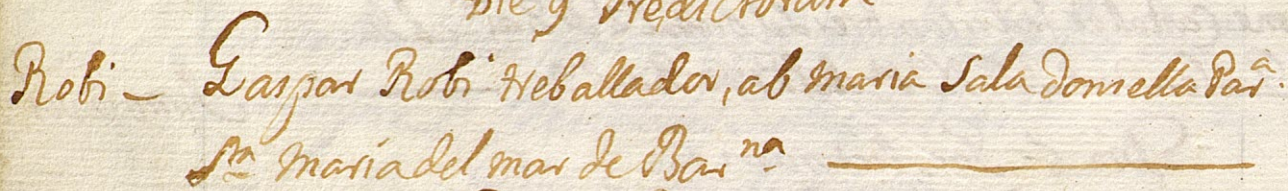 Die 9 Predictorum
Robi - Gaspar Robi treballador, ab Maria Sala donsella Par.ª
Sta Maria del mar de Bar.na